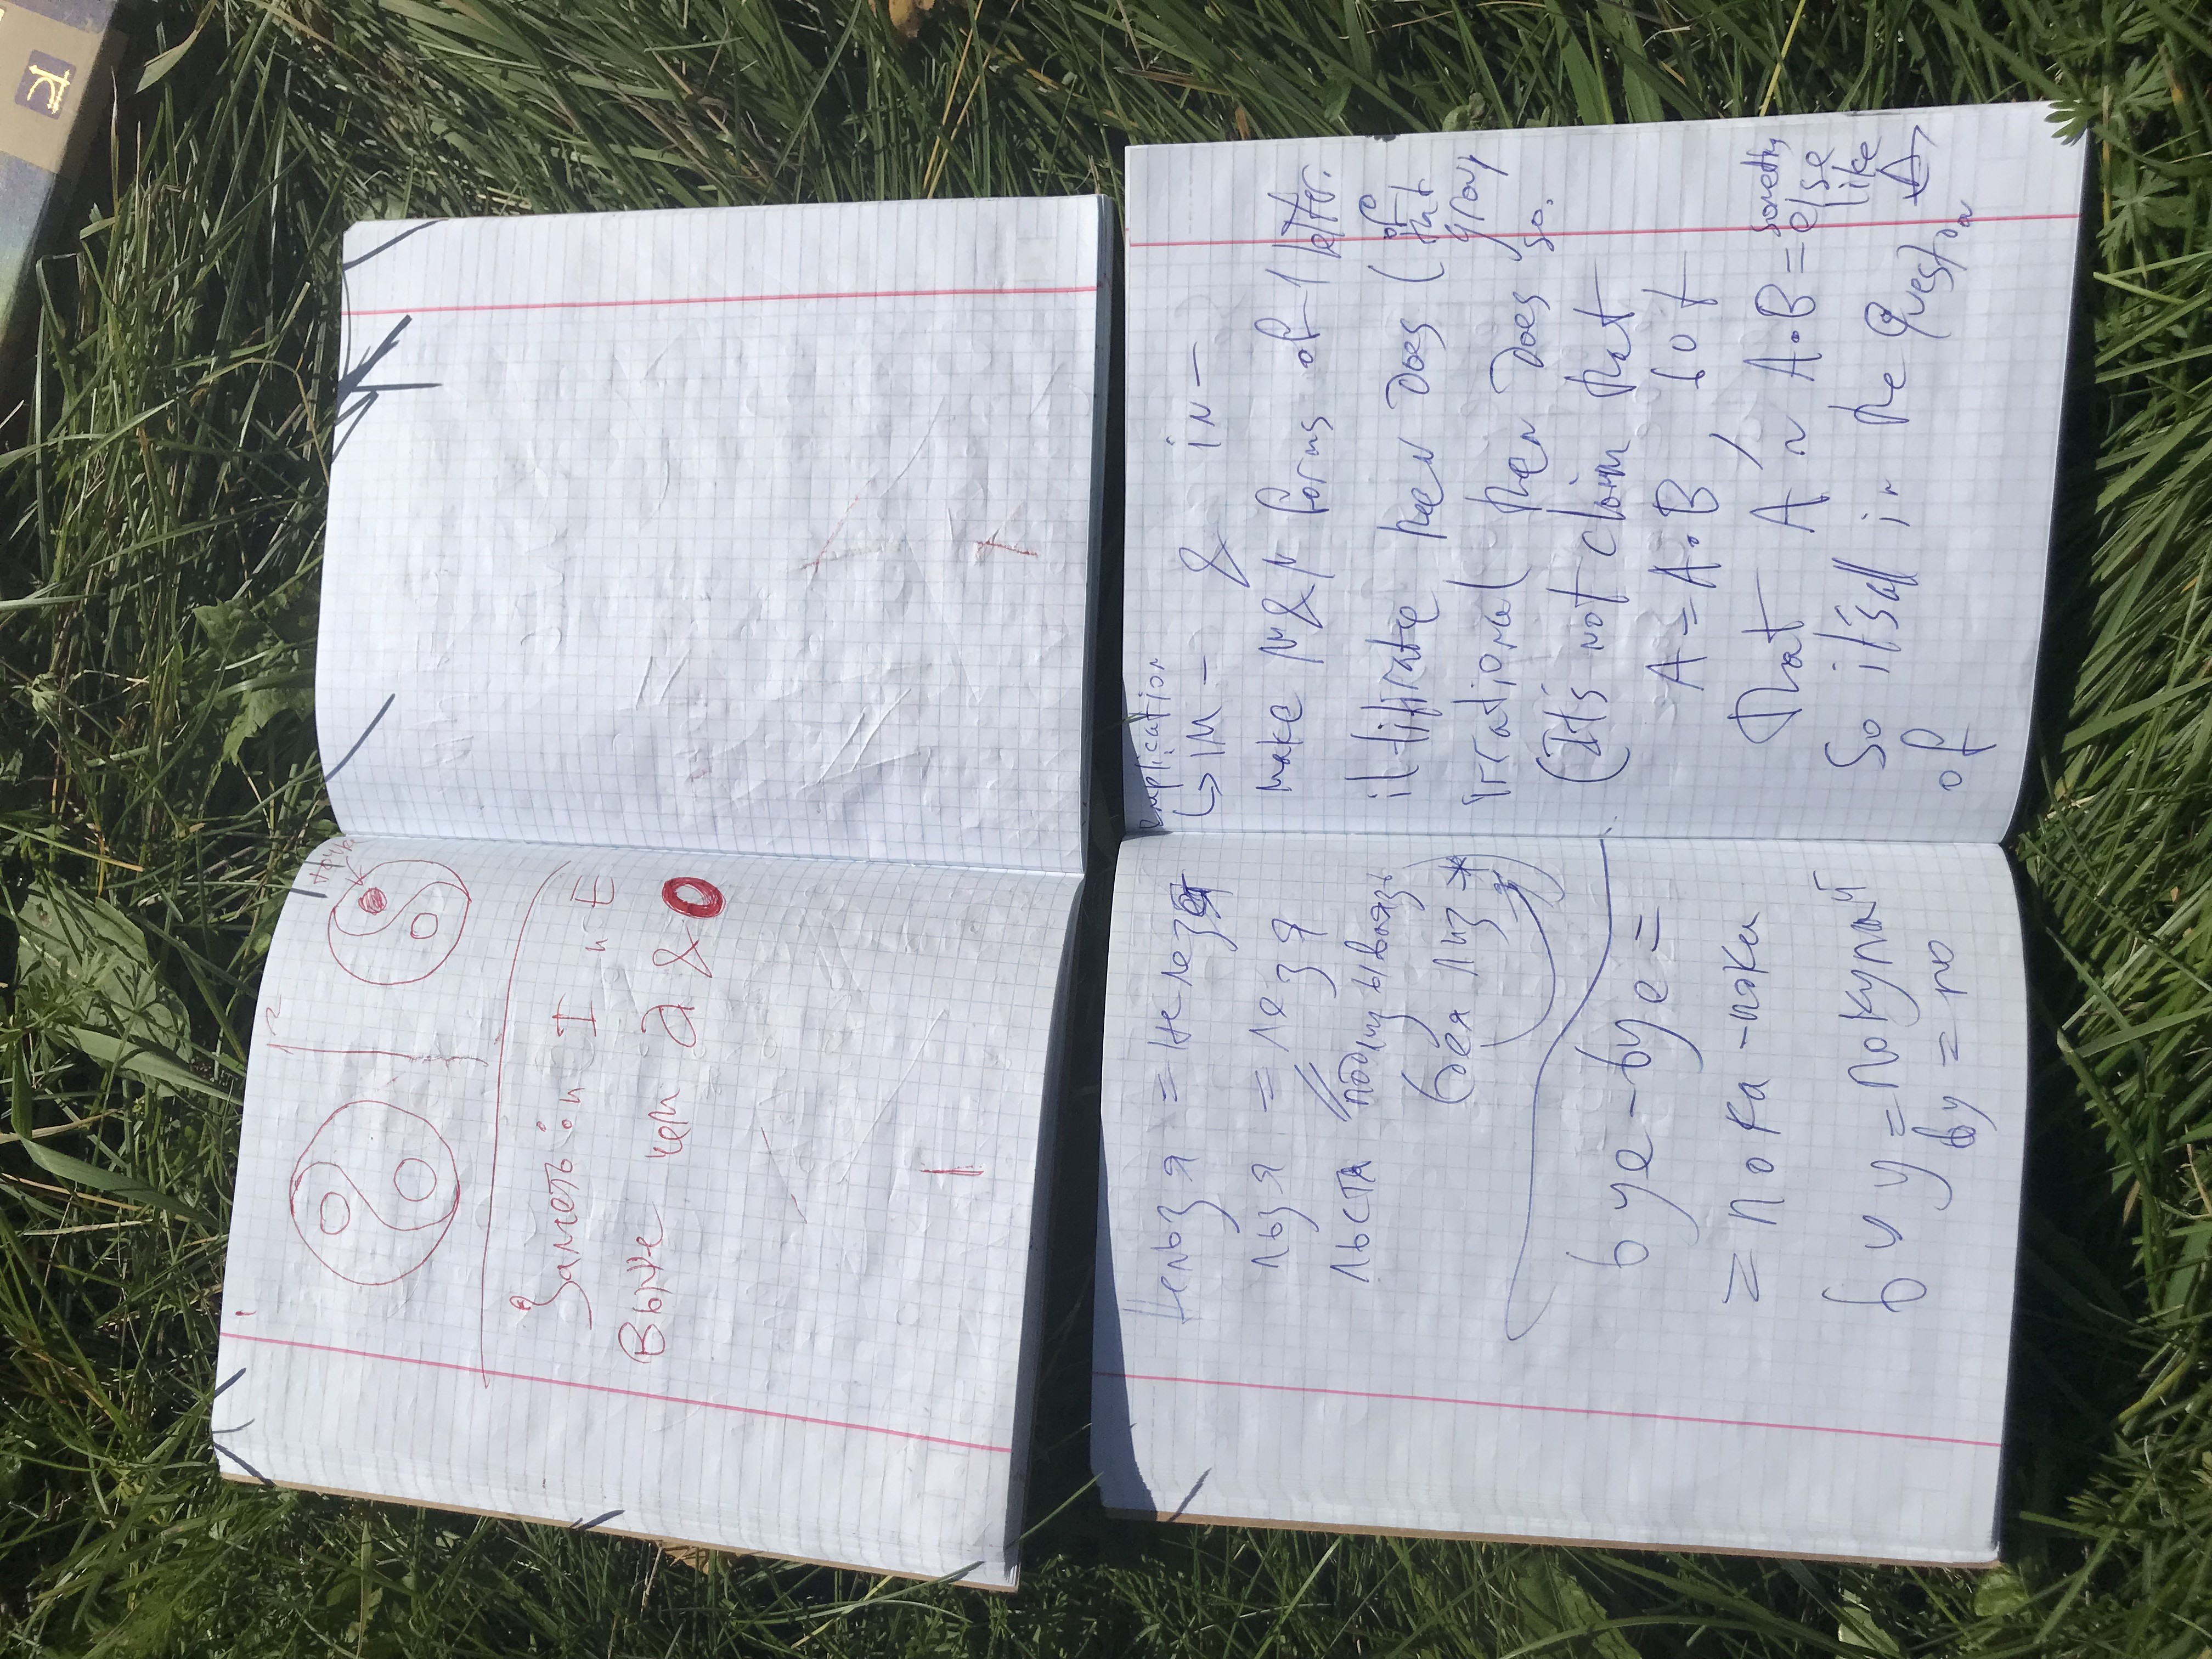 1
2
точка
Заметь: и I и E
Выше чем a & O
Нельзя = не лезя
льзя = лезя
льстя подлизываясь
без лиз *
bye-bye =
= пока-пока
buy = покупай
by = по
implication
↳ im- & in-
make м & n forms of 1 letter.
then does (of that group
irrational then does so.
(It's not claim that
A = A•B, bot
that A ~ A•B = something else like
So it's all in the Question
of